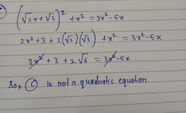 (√2 x + √3)² + x² = 3x² - 5x
2x² + 3 + 2(√2)(√3) + x² = 3x² - 5x
3x² + 3 + 2√6 = 3x² - 5x
So, (C) is not a quadratic equation.